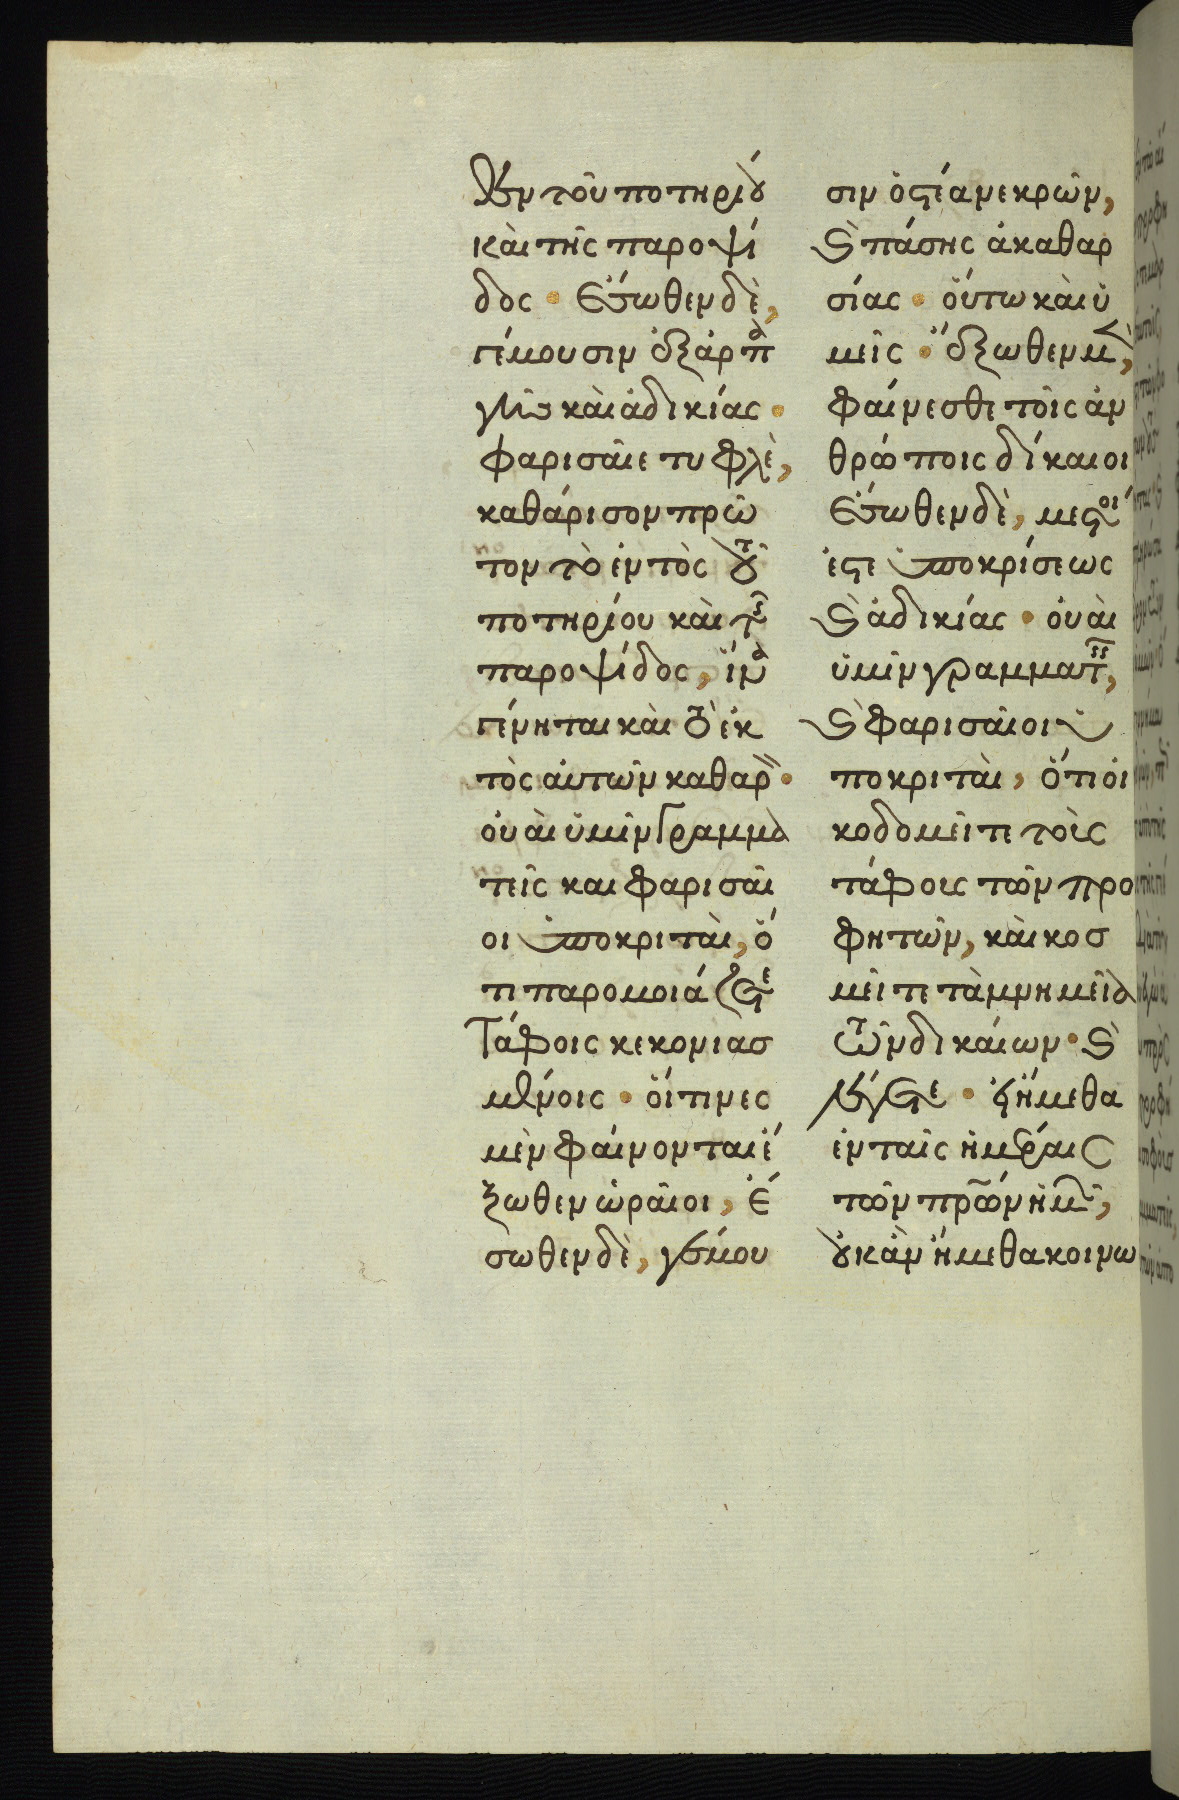 θεν τοῦ ποτηρίου
καὶ τῆς παροψί
δος · ἔσωθεν δὲ,
γέμουσιν ἐξ ἁρπα
γῆς καὶ ἀδικίας ·
φαρισαῖε τυφλὲ,
καθάρισον πρῶ
τον τὸ ἐντὸς τοῦ
ποτηρίου καὶ τῆς
παροψίδος, ἵνα
γένηται καὶ τὸ ἐκ
τὸς αὐτῶν καθαρὸν ·
οὐαὶ ὑμῖν Γραμμα
τεῖς και φαρισαῖ
οι ὑποκριταὶ, ὅ
τι παρομοιάζετε
Τάφοις κεκονιασ
μένοις · οἵτινες
μὲν φαίνονται ἔ
ξωθεν ὡραῖοι, ἔ
σωθεν δὲ, γέμου
σιν ὀστέα νεκρῶν,
καὶ πάσης ἀκαθαρ
σίας · οὕτω καὶ ὑ
μεῖς · ἔξωθεν μὲν,
φαίνεσθε τοῖς ἀν
θρώποις δίκαιοι
ἔσωθεν δὲ, μεστοί
ἐστε ὑποκρίσεως
καὶ ἀδικίας · οὐαὶ
ὑμῖν γραμματεῖς,
καὶ φαρισαῖοι ὑ
ποκριταὶ, ὅτι οἰ
κοδομεῖτε τοὶς
τάφοις τῶν προ
φητῶν, καὶ κοσ
μεῖτε τὰ μνημεῖα
τῶν δικαίων · καὶ
λέγετε · εἰ ἤμεθα
ἐν ταῖς ἡμέραις
τῶν πρων ἡμῶν,
οὐκ ἂν ἤμεθα κοινω